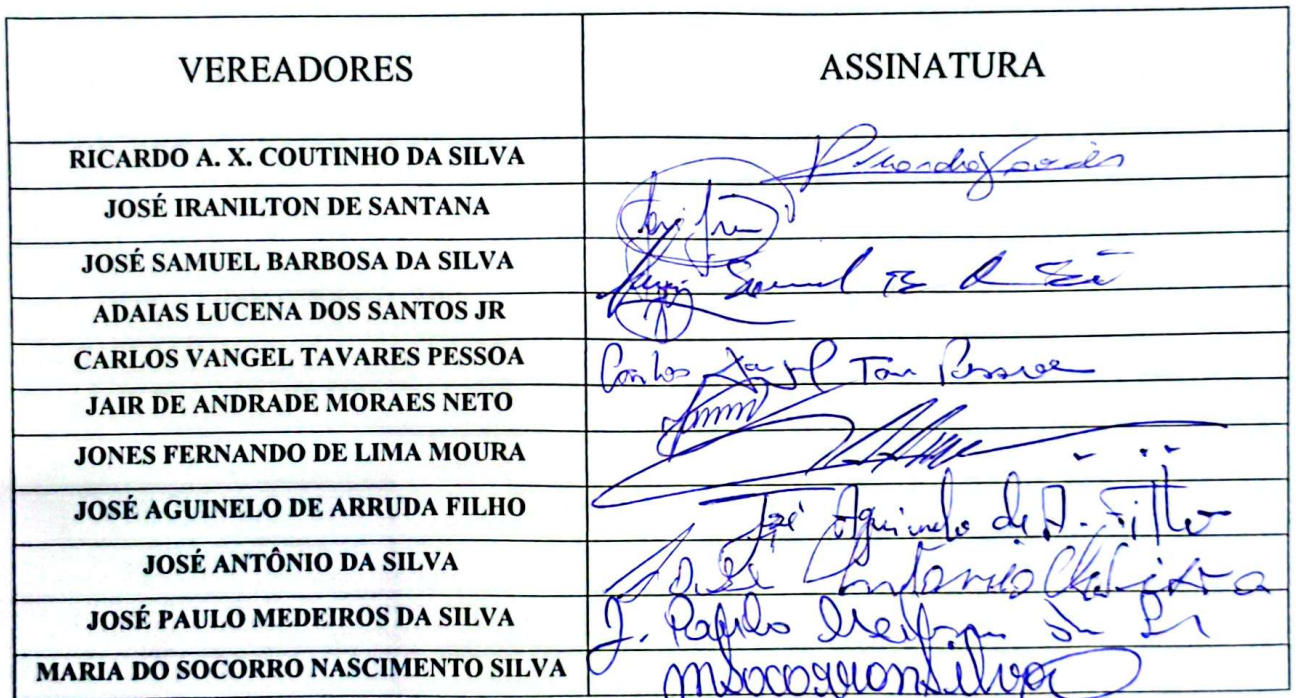 VEREADORES ASSINATURA
RICARDO A. X. COUTINHO DA SILVA
JOSÉ IRANILTON DE SANTANA
JOSÉ SAMUEL BARBOSA DA SILVA Samuel B
ADAIAS LUCENA DOS SANTOS JR
CARLOS VANGEL TAVARES PESSOA Carlos Pessoa
JAIR DE ANDRADE MORAES NETO
JONES FERNANDO DE LIMA MOURA
JOSÉ AGUINELO DE ARRUDA FILHO José Aguinelo de A. Filho
JOSÉ ANTÔNIO DA SILVA José Antonio
JOSÉ PAULO MEDEIROS DA SILVA J. Paulo
MARIA DO SOCORRO NASCIMENTO SILVA msocorronsilva